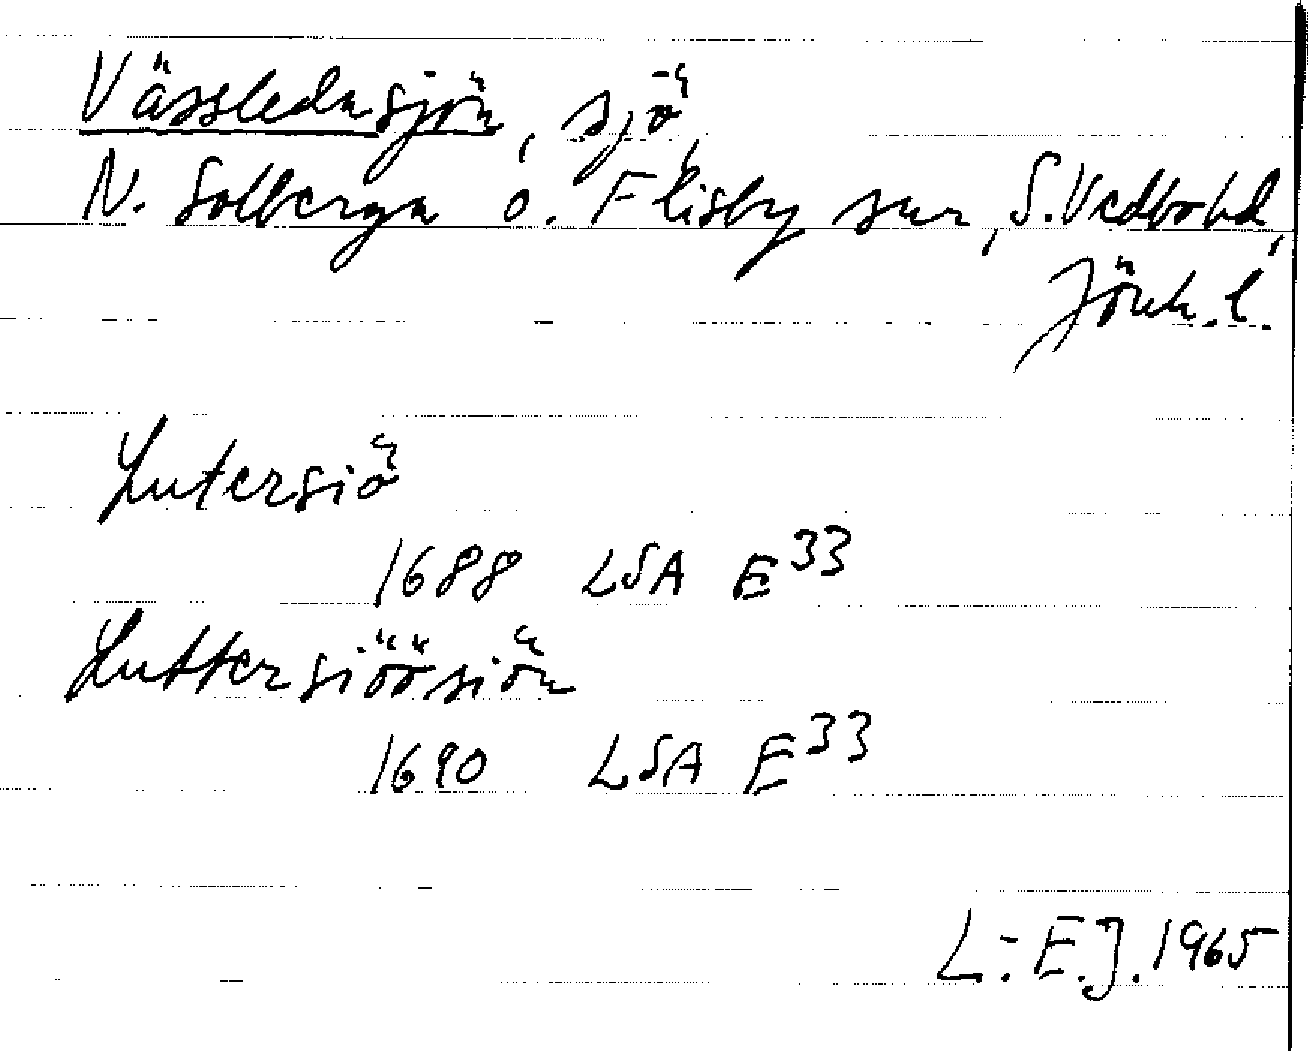 Vässledasjön, sjö,
N. Solberga o. Flisby snr, S. Vedbo hd,
Jönk. l.
Lutersiö
1688 LSA E33
Luttersiöösiön
1690 LSA E33
L.-E.J. 1965